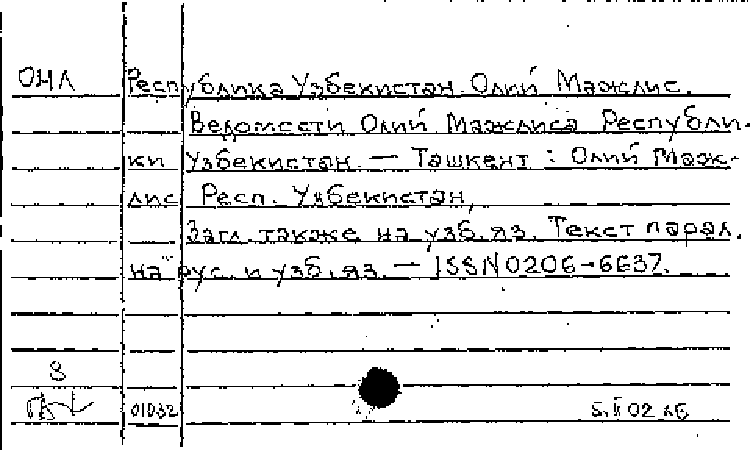 ОНЛ Республика Узбекистан. Олий Мажлис.
Ведомости Олий Мажлиса Республи-
ки Узбекистан. — Ташкент : Олий Маж-
лис Респ. Узбекистан,
Загл. также на узб. яз. Текст парал.
на рус. и узб. яз. — ISSN 0206-6637.
8
01032